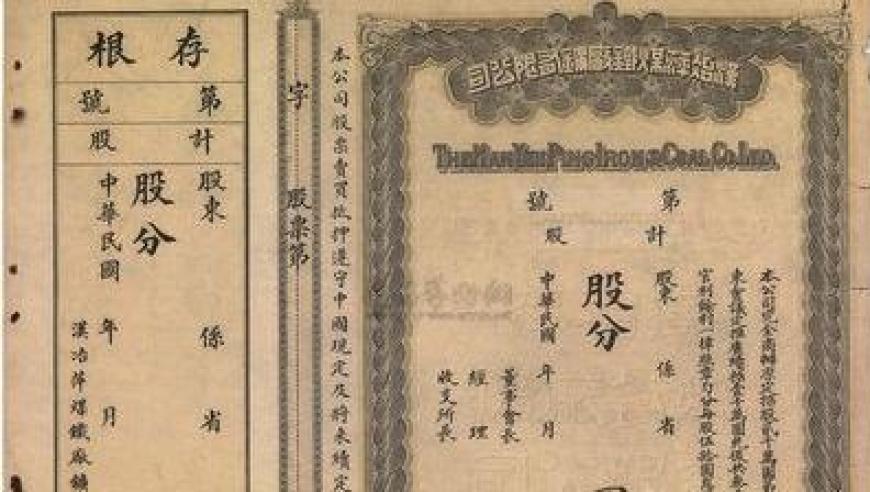 漢冶萍煤鐵廠鑛有限公司
THE HAN YEH PING IRON & COAL CO. LTD.
第 號
計 股
股東 係 省
股分
中華民國 年 月
董事會長
經理
收支所長
本公司股票賣買抵押遵守中國現定及將來續定
字 股票第
存根
第 號
計 股
股東 係 省
股分
中華民國 年 月
漢冶萍煤鐵廠鑛